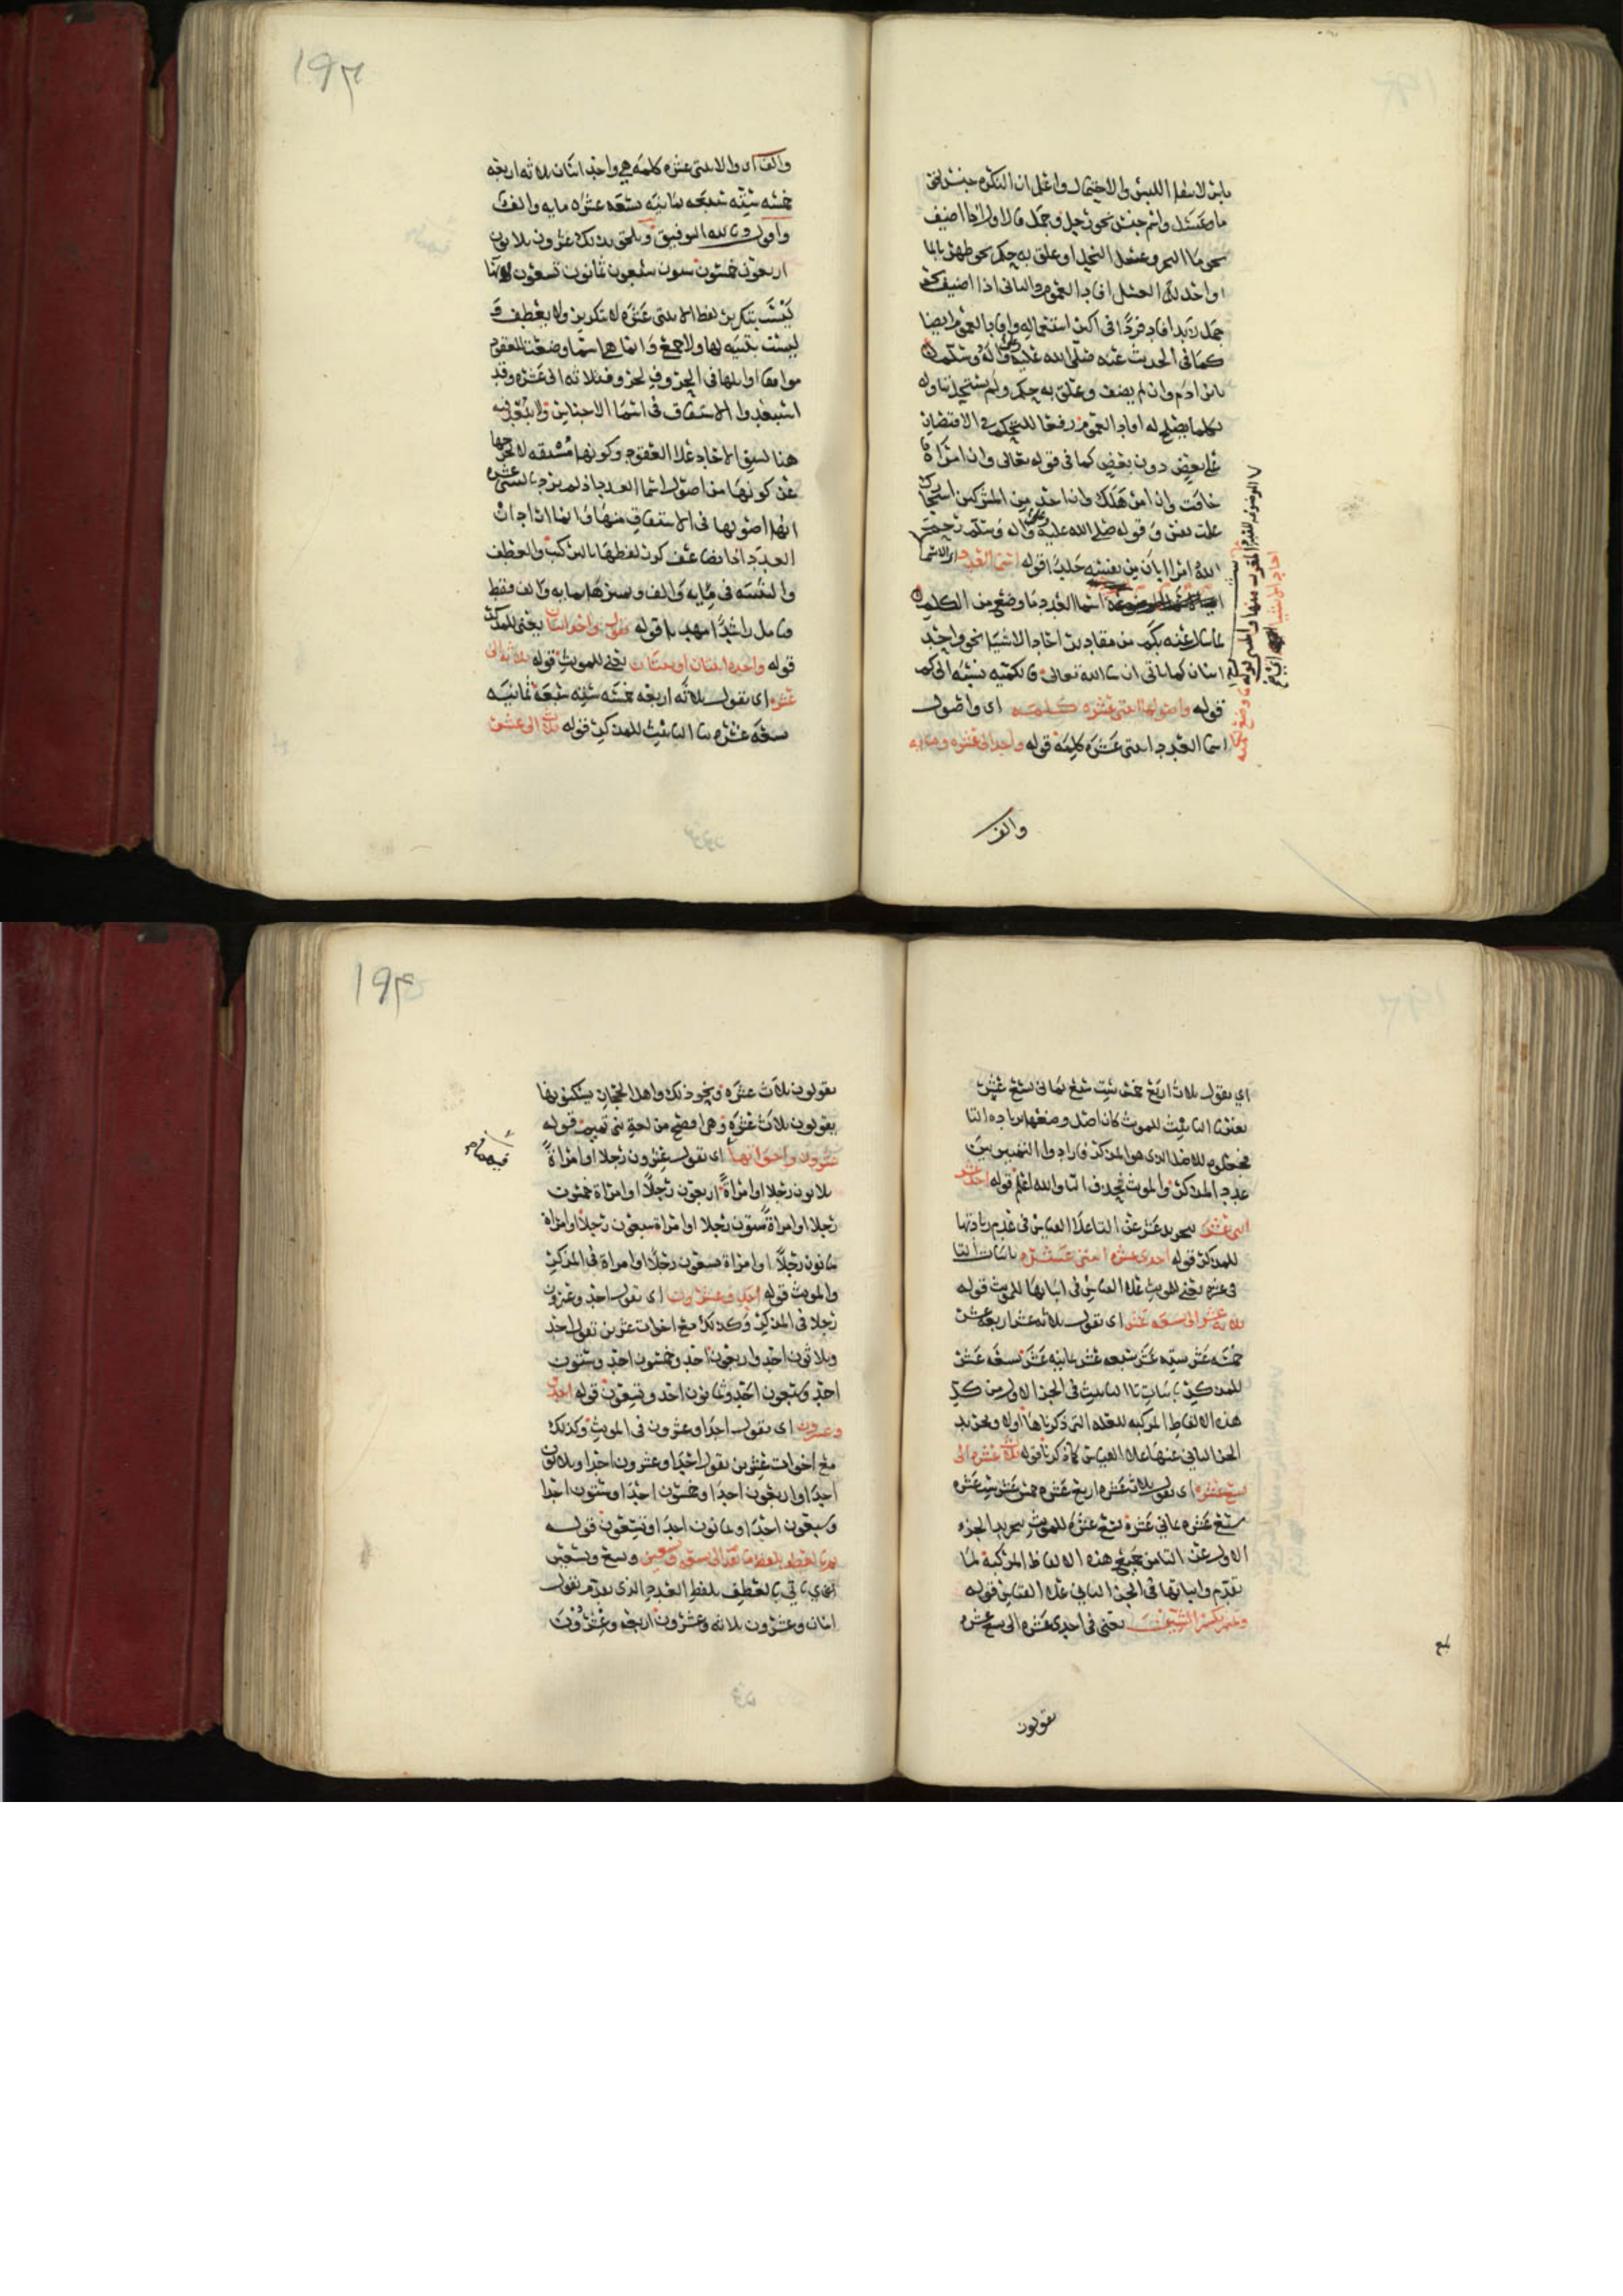 بابن لاسفا اللبس والاحتمال واعلم ان النكرة جنس
ما وعسل واسم جنس نحو رجل وجمل فالاول اذا اضيف
نحو ما البحر وعسل النحل او علق به حكم نحو طهرنا بالما
واخذ له العسل افاد العموم والثاني اذا اضيف نحو
جمل زيد افاد فردا في اكثر استعماله وافاد العموم ايضا
كما في الحديث عنه صلى الله عليه وعلى اله وسلم
بابن ادم وان لم يضف وعلق به حكم ولم يستحل تناوله
لكلما يصلح له افاد العموم رفعا للتحكم في الاقتضا
على بعض دون بعض كما في قوله تعالى وان امراة
خافت وان امرؤ هلك وان احد من المشركين استجارك
علمت نفس وقوله صلى الله عليه وعلى اله وسلم رحم
الله امرا ابان من نفسه جلدا قوله اسما العدد
اسما العدد ما وضع من الكلم
لما سال عنه بكم من مقادير احاد الاشيا نحو واحد
اثنان كما ياتي ان شا الله تعالى فالكمية نسبة الى كم
قوله واصولها اثنتي عشرة كلمة اي واصول
اسما العدد اثنتي عشرة كلمة قوله واحد الى عشرة ومايه
والف
١٩٣
والف اي والاثنتي عشره كلمة هي واحد اثنان ثلاثه اربعه
خمسه سته سبعه ثمانيه تسعه عشره مايه والف
واقول وبالله التوفيق ويلحق بذلك عشرون ثلاثون
اربعون خمسون ستون سبعون ثمانون تسعون لانها
ليست بتكرير لفظ الاثنتي عشرة لا بتكرير ولا بعطف
ليست بتثنيه لها ولا جمع وانما هي اسما وضعت للعقود
موافقا اوايلها في الحروف لحروف ثلاثه الى عشره وقد
استبعدوا الاشتقاق في اسما الاجناس ولا يبعد فيه
هنا لسبق الاحاد على العقود وكونها مشتقه لا يخرجها
عن كونها من اصول اسما العدد اذ لم يزد بالستى عشره
انها اصولها في الاشتقاق منها وانما اراد ان
العدد اذا تضاعف كرر لفظها بالتركيب والعطف
والتثنيه في مايه والف وبميزها بمايه والف فقط
فتامل راشدا مهديا قوله تقول واحد اثنان يعني للمذكر
قوله واحده اثنتان او ثنتان يعني للمونث قوله ثلاثه الى
عشره اي تقول ثلاثه اربعه خمسه سته سبعه ثمانيه
تسعه عشره بتا التانيث للمذكر قوله ثلاث الى عشر
اي تقول ثلاث اربع خمس ست سبع ثمان تسع عشر
بغير تا التانيث للمونث كان اصل وضعها بزياده التا
فجعلوه للاصل الذي هو المذكر فارادوا التمييز بين
عدد المذكر والمونث بحذف التا والله اعلم قوله احد عشر
اثني عشر بتجريد عشر عن التا على القياس في عدم زيادتها
للمذكر قوله احدى عشره اثنتي عشره باثبات التا
في عشره يعني للمونث على القياس في اثباتها للمونث قوله
ثلاثه عشر الى تسعه عشر اي تقول ثلاثه عشر اربعه عشر
خمسه عشر سته عشر سبعه عشر ثمانيه عشر تسعه عشر
للمذكر باثبات تا التانيث في الجز الاول من كل
هذه الالفاظ المركبه للعله التي ذكرناها اولا وتجريد
الجز الثاني عنها على القياس كما ذكرنا قوله ثلاث عشره الى
تسع عشره اي تقول ثلاث عشره اربع عشره خمس عشره ست عشره
سبع عشره ثماني عشره تسع عشره للمونث بتجريد الجزء
الاول عن التا من جميع هذه الالفاظ المركبه لما
تقدم واثباتها في الجز الثاني على القياس قوله
وتميم تكسر الشين يعني في احدى عشره الى تسع عشره
يقولون
١٩٤
يقولون ثلاث عشره ونحو ذلك واهل الحجاز يسكنونها
يقولون ثلاث عشره وهي افصح من لغة بني تميم قوله
عشرون واخواتها اي تقول عشرون رجلا او امراة
ثلاثون رجلا او امراة اربعون رجلا او امراة خمسون
رجلا او امراة ستون رجلا او امراة سبعون رجلا او امراة
ثمانون رجلا او امراة تسعون رجلا او امراة في المذكر
والمونث قوله احد وعشرون اي تقول احد وعشرون
رجلا في المذكر وكذلك مع اخوات عشرين تقول احد
وثلاثون احد واربعون احد وخمسون احد وستون
احد وسبعون احد وثمانون احد وتسعون قوله احدى
وعشرون اي تقول احدا وعشرون في المونث وكذلك
مع اخوات عشرين تقول احدا وعشرون احدا وثلاثون
احدا واربعون احدا وخمسون احدا وستون احدا
وسبعون احدا وثمانون احدا وتسعون قوله
ثم بالعطف بلفظ ما تقدم الى تسعه وتسعين وتسع وتسعين
اي ياتي بالعطف بلفظ العدد الذي تقدم تقول
اثنان وعشرون ثلاثه وعشرون اربعه وعشرون